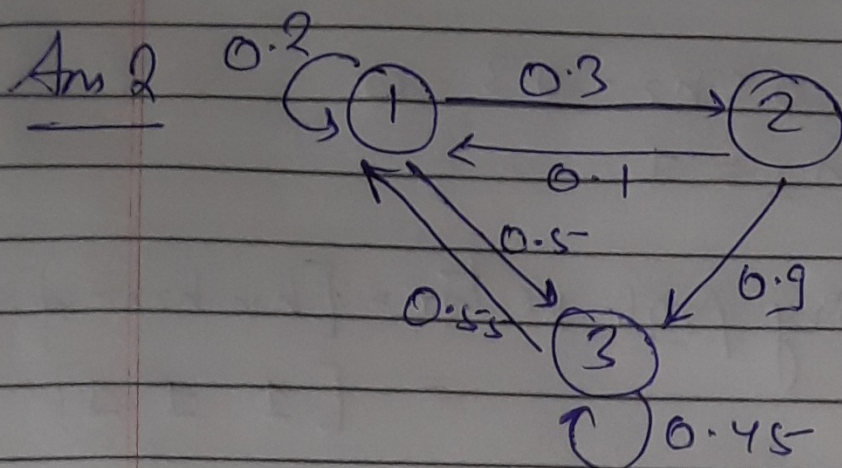 Ans 2 0.2 1 0.3 2
0.1
0.5
0.55 0.9
3
0.45